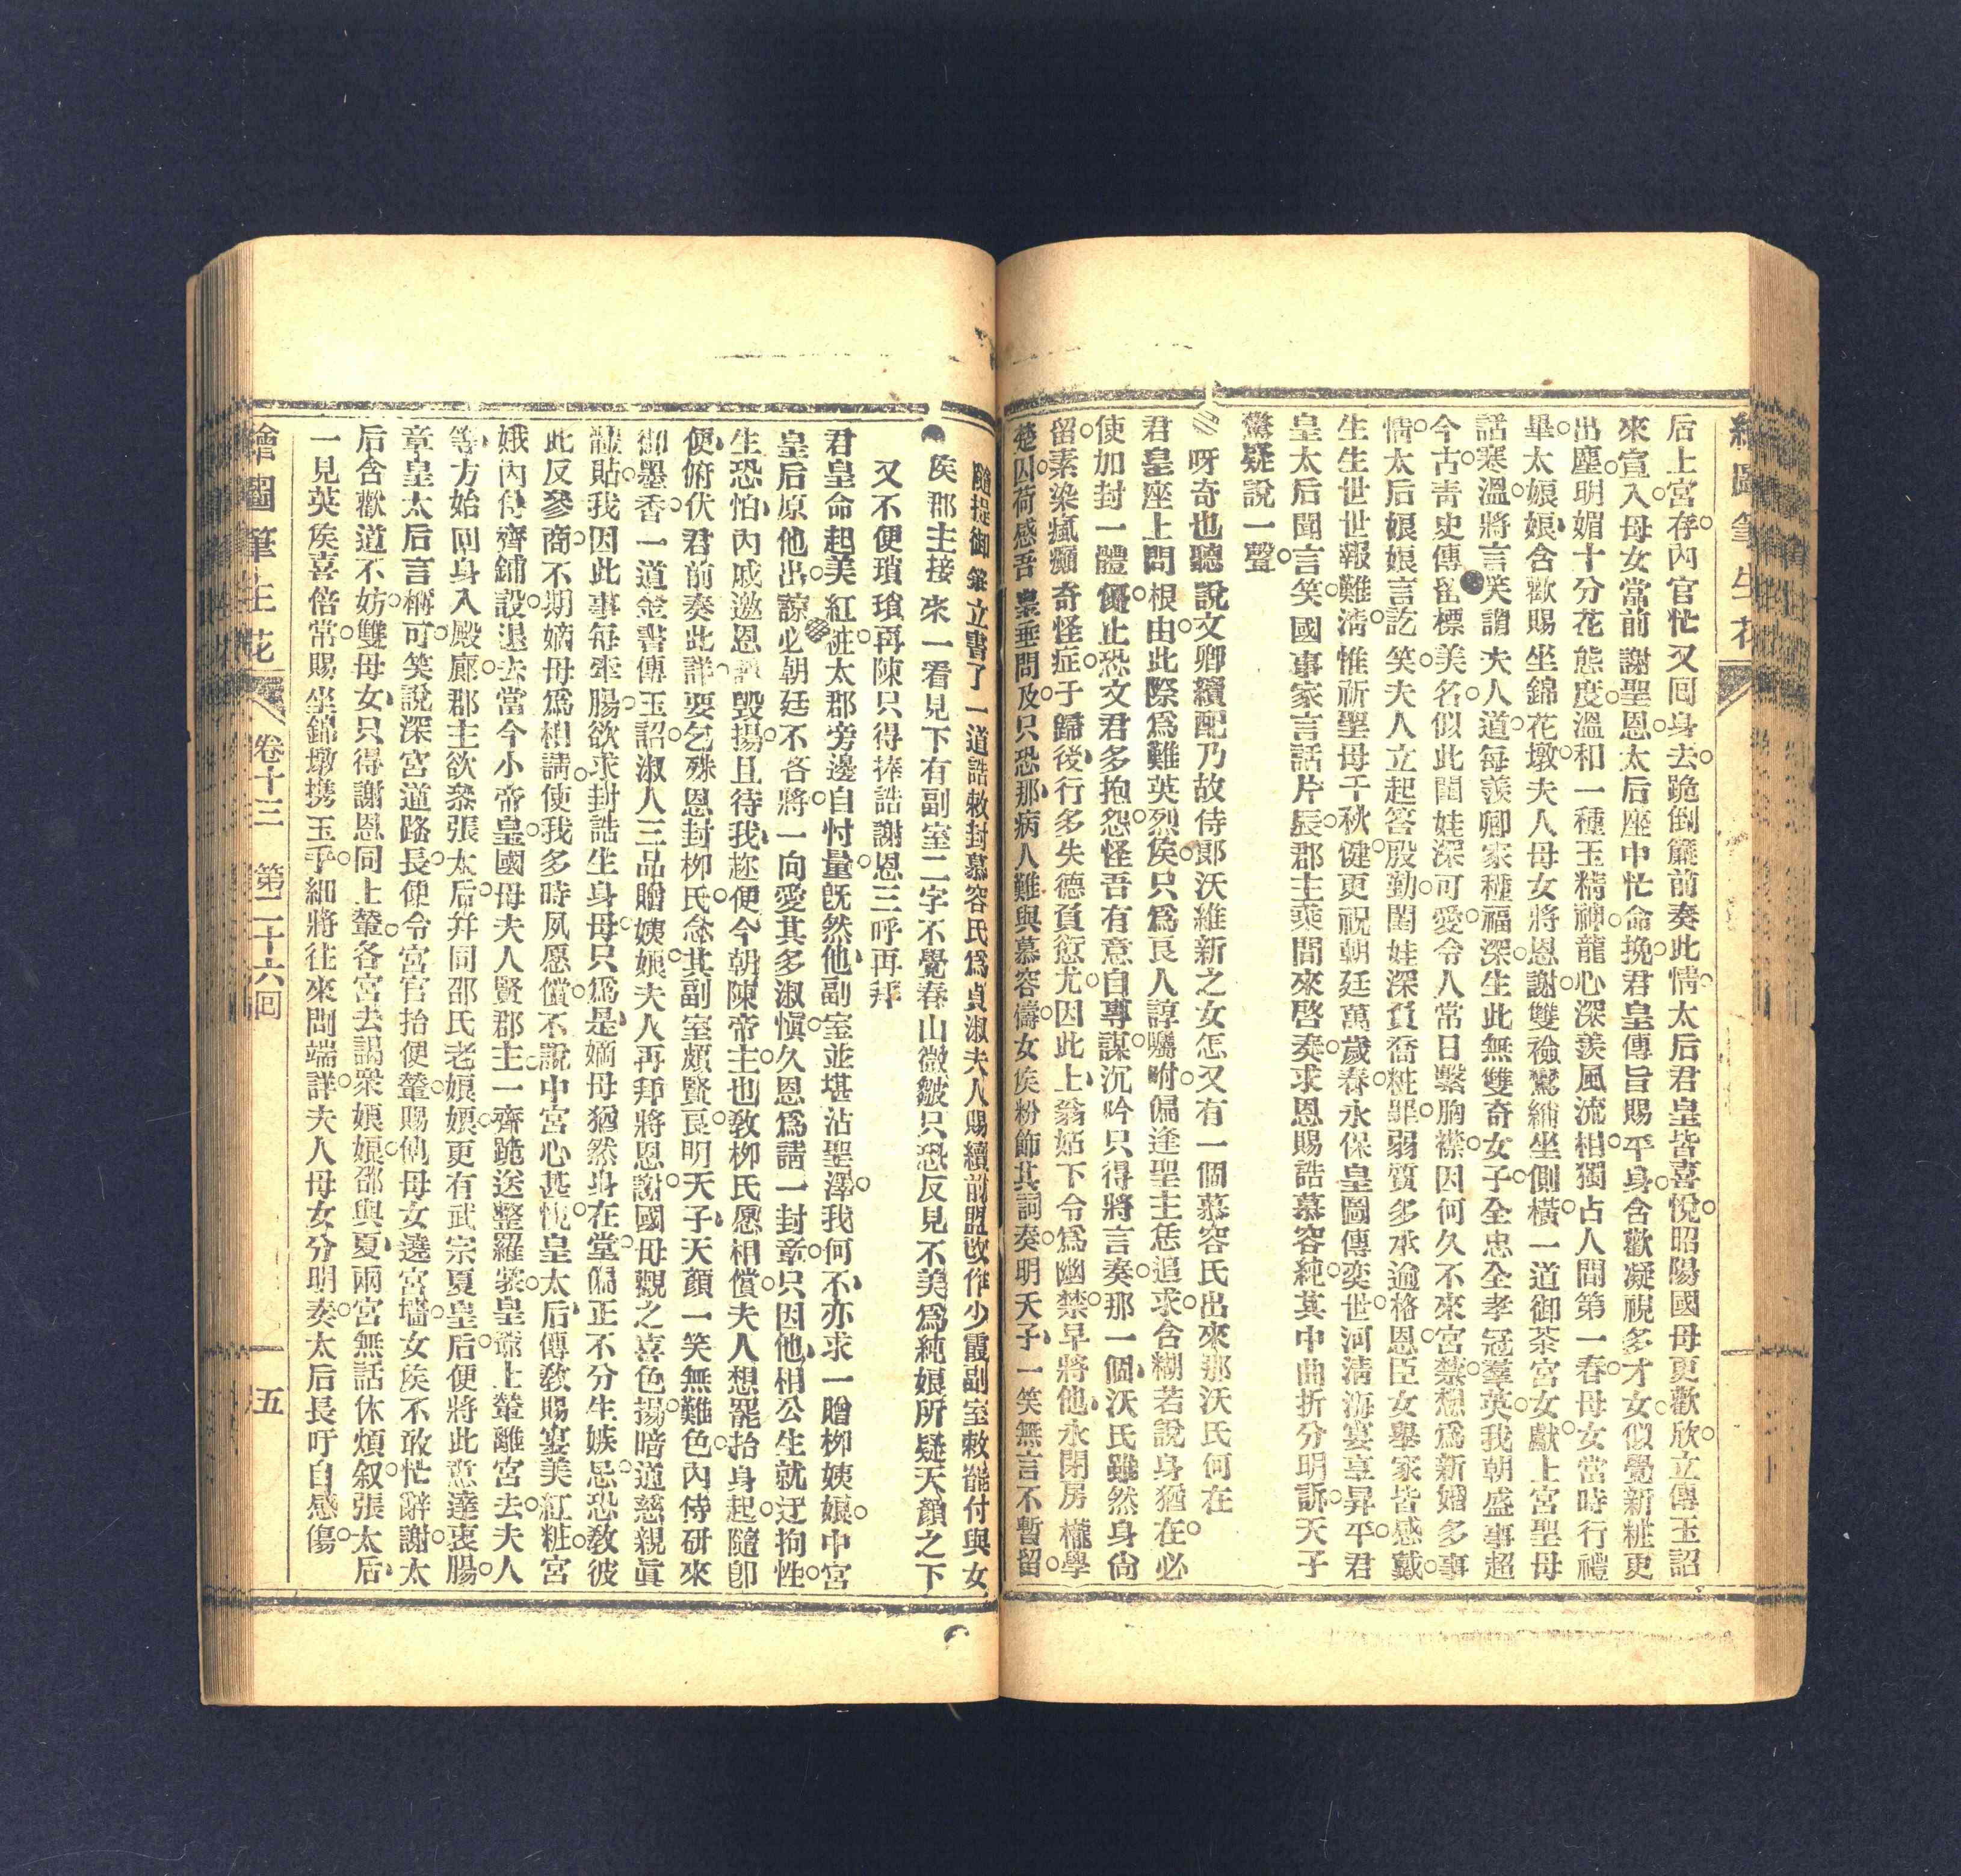 繪圖筆生花
后上宮存內官忙又回身去跪倒簾前奏此情太后君皇皆喜悅昭陽國母更歡欣立傳玉詔
來宣入母女當前謝聖恩太后座中忙命挽君皇傳旨賜平身含歡凝視多才女似覺新糚更
出塵明媚十分花態度溫和一種玉精神龍心深羨風流相獨占人間第一春母女當時行禮
畢太娘娘含歡賜坐錦花墩夫人母女將恩謝雙襝鴛綃坐側橫一道御茶宮女獻上宮聖母
話寒溫將言笑謂夫人道每羨卿家種福深生此無雙奇女子全忠全孝冠羣英我朝盛事超
今古青史傳留標美名似此閨娃深可愛令人常日繫胸襟因何久不來宮禁想爲新婚多事
情太后娘娘言訖笑夫人立起答殷勤閨娃深負喬糚罪弱質多承逾格恩臣女舉家皆感戴
生生世世報難清惟祈聖母千秋健更祝朝廷萬歲春永保皇圖傳奕世河清海宴享昇平君
皇太后聞言笑國事家言話片辰郡主乘間來啓奏求恩賜誥慕容純其中曲折分明訴天子
驚疑說一聲
呀奇也聽說文卿續配乃故侍郎沃維新之女怎又有一個慕容氏出來那沃氏何在
君皇座上問根由此際爲難英烈侯只爲良人諄囑咐偏逢聖主恁追求含糊若說身猶在必
使加封一體優止恐文君多抱怨怪吾有意自專謀沉吟只得將言奏那一個沃氏雖然身尙
留素染瘋癲奇怪症于歸後行多失德負愆尤因此上翁姑下令爲幽禁早將他永閉房櫳學
楚囚荷感吾皇垂問及只恐那病人難與慕容儔女侯粉飾其詞奏明天子一笑無言不暫留
隨提御筆立書了一道誥敕封慕容氏爲貞淑夫人賜續前盟改作少霞副室敕罷付與女
侯郡主接來一看見下有副室二字不覺春山微皺只恐反見不美爲純娘所疑天顔之下
又不便瑣瑣再陳只得捧誥謝恩三呼再拜
君皇命起美紅糚太郡旁邊自忖量旣然他副室並堪沾聖澤我何不亦求一贈柳姨娘中宮
皇后原他出諒必朝廷不吝將一向愛其多淑愼久恩爲請一封章只因他相公生就迂拘性
生恐怕內戚邀恩毀揚且待我趁便今朝陳帝主也敎柳氏愿相償夫人想罷抬身起隨卽
便俯伏君前奏此詳要乞殊恩封柳氏念其副室頗賢良明天子天顔一笑無難色內侍研來
御墨香一道金書傳玉詔淑人三品贈姨娘夫人再拜將恩謝國母觀之喜色揚暗道慈親眞
體貼我因此事每牽腸欲求封誥生身母只爲是嫡母猶然身在堂偏正不分生嫉忌恐敎彼
此反參商不期嫡母爲相請使我多時夙愿償不說中宮心甚悅皇太后傳敎賜宴美紅糚宮
娥內侍齊鋪設退去當今小帝皇國母夫人賢郡主一齊跪送整羅裳皇爺上輦離宮去夫人
等方始回身入殿廊郡主欲叅張太后幷同邵氏老娘娘更有武宗夏皇后便將此意達衷腸
章皇太后言稱可笑說深宮道路長便令宮官抬便輦賜他母女遶宮墻女侯不敢忙辭謝太
后含歡道不妨雙母女只得謝恩同上輦各宮去謁衆娘娘邵與夏兩宮無話休煩叙張太后
一見英侯喜倍常賜坐錦墩携玉手細將往來問端詳夫人母女分明奏太后長吁自感傷
繪圖筆生花 卷十三 第二十六回 五